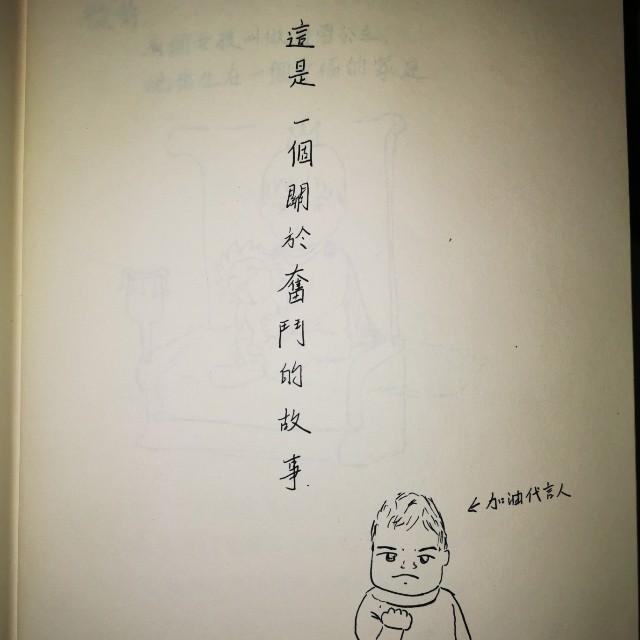 這是一個關於奮鬥的故事.
←加油代言人